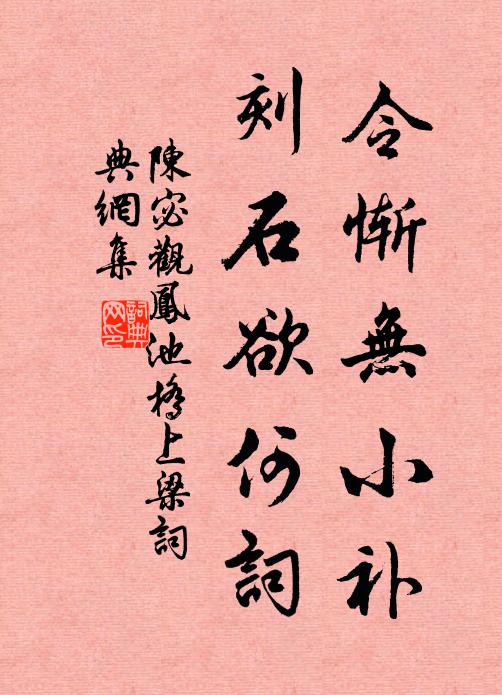 令慚無小补
刻石欲何詞
陳宓觀鳳池橋上梁詞
典網集
詞典網印